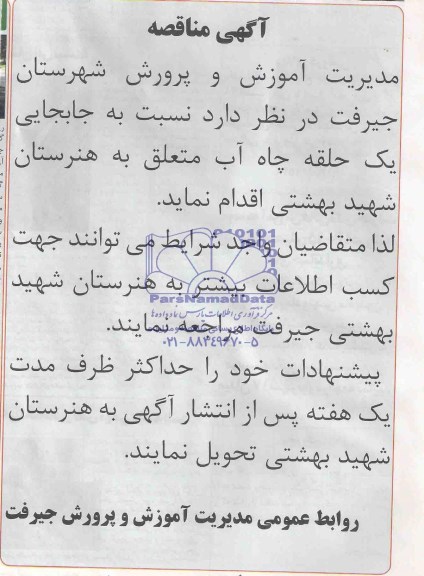 آگهی مناقصه
مدیریت آموزش و پرورش شهرستان
جیرفت در نظر دارد نسبت به جابجایی
یک حلقه چاه آب متعلق به هنرستان
شهید بهشتی اقدام نماید.
لذا متقاضیان واجد شرایط می توانند جهت
کسب اطلاعات بیشتر به هنرستان شهید
ParsNamadData
بهشتی جیرفت مراجعه نمایند.
۰۲۱-۸۸۳۴۹۶۷۰-۵
پیشنهادات خود را حداکثر ظرف مدت
یک هفته پس از انتشار آگهی به هنرستان
شهید بهشتی تحویل نمایند.
روابط عمومی مدیریت آموزش و پرورش جیرفت